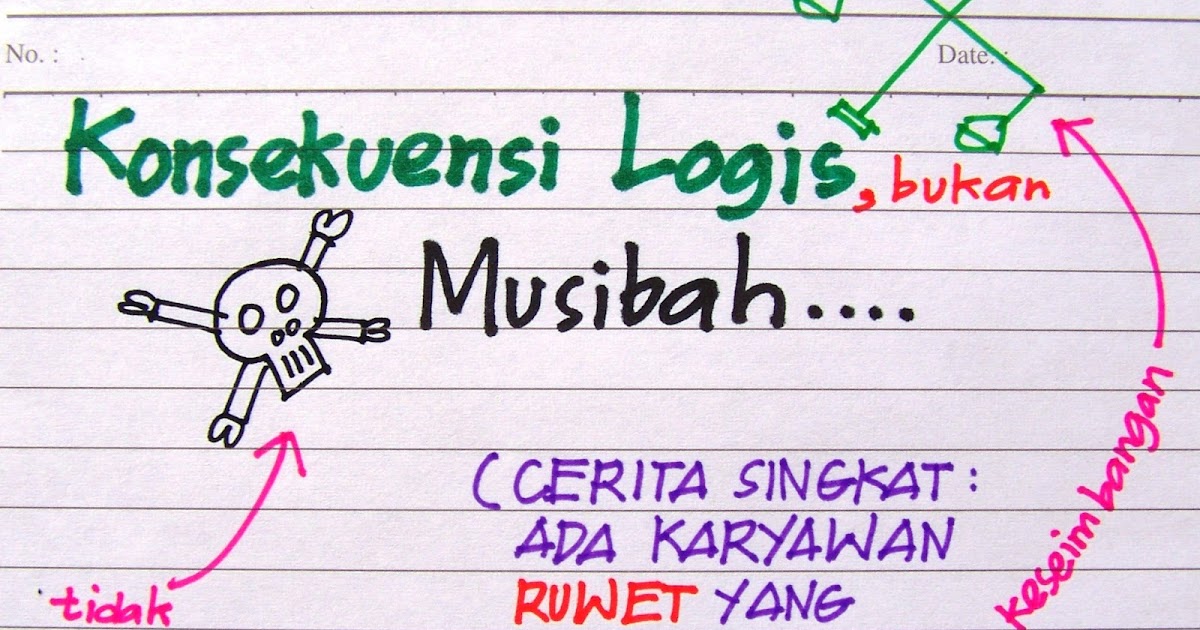 No. :
Date. :
Konsekuensi Logis, bukan
Musibah....
(CERITA SINGKAT :
ADA KARYAWAN
RUWET YANG
tidak
keseimbangan